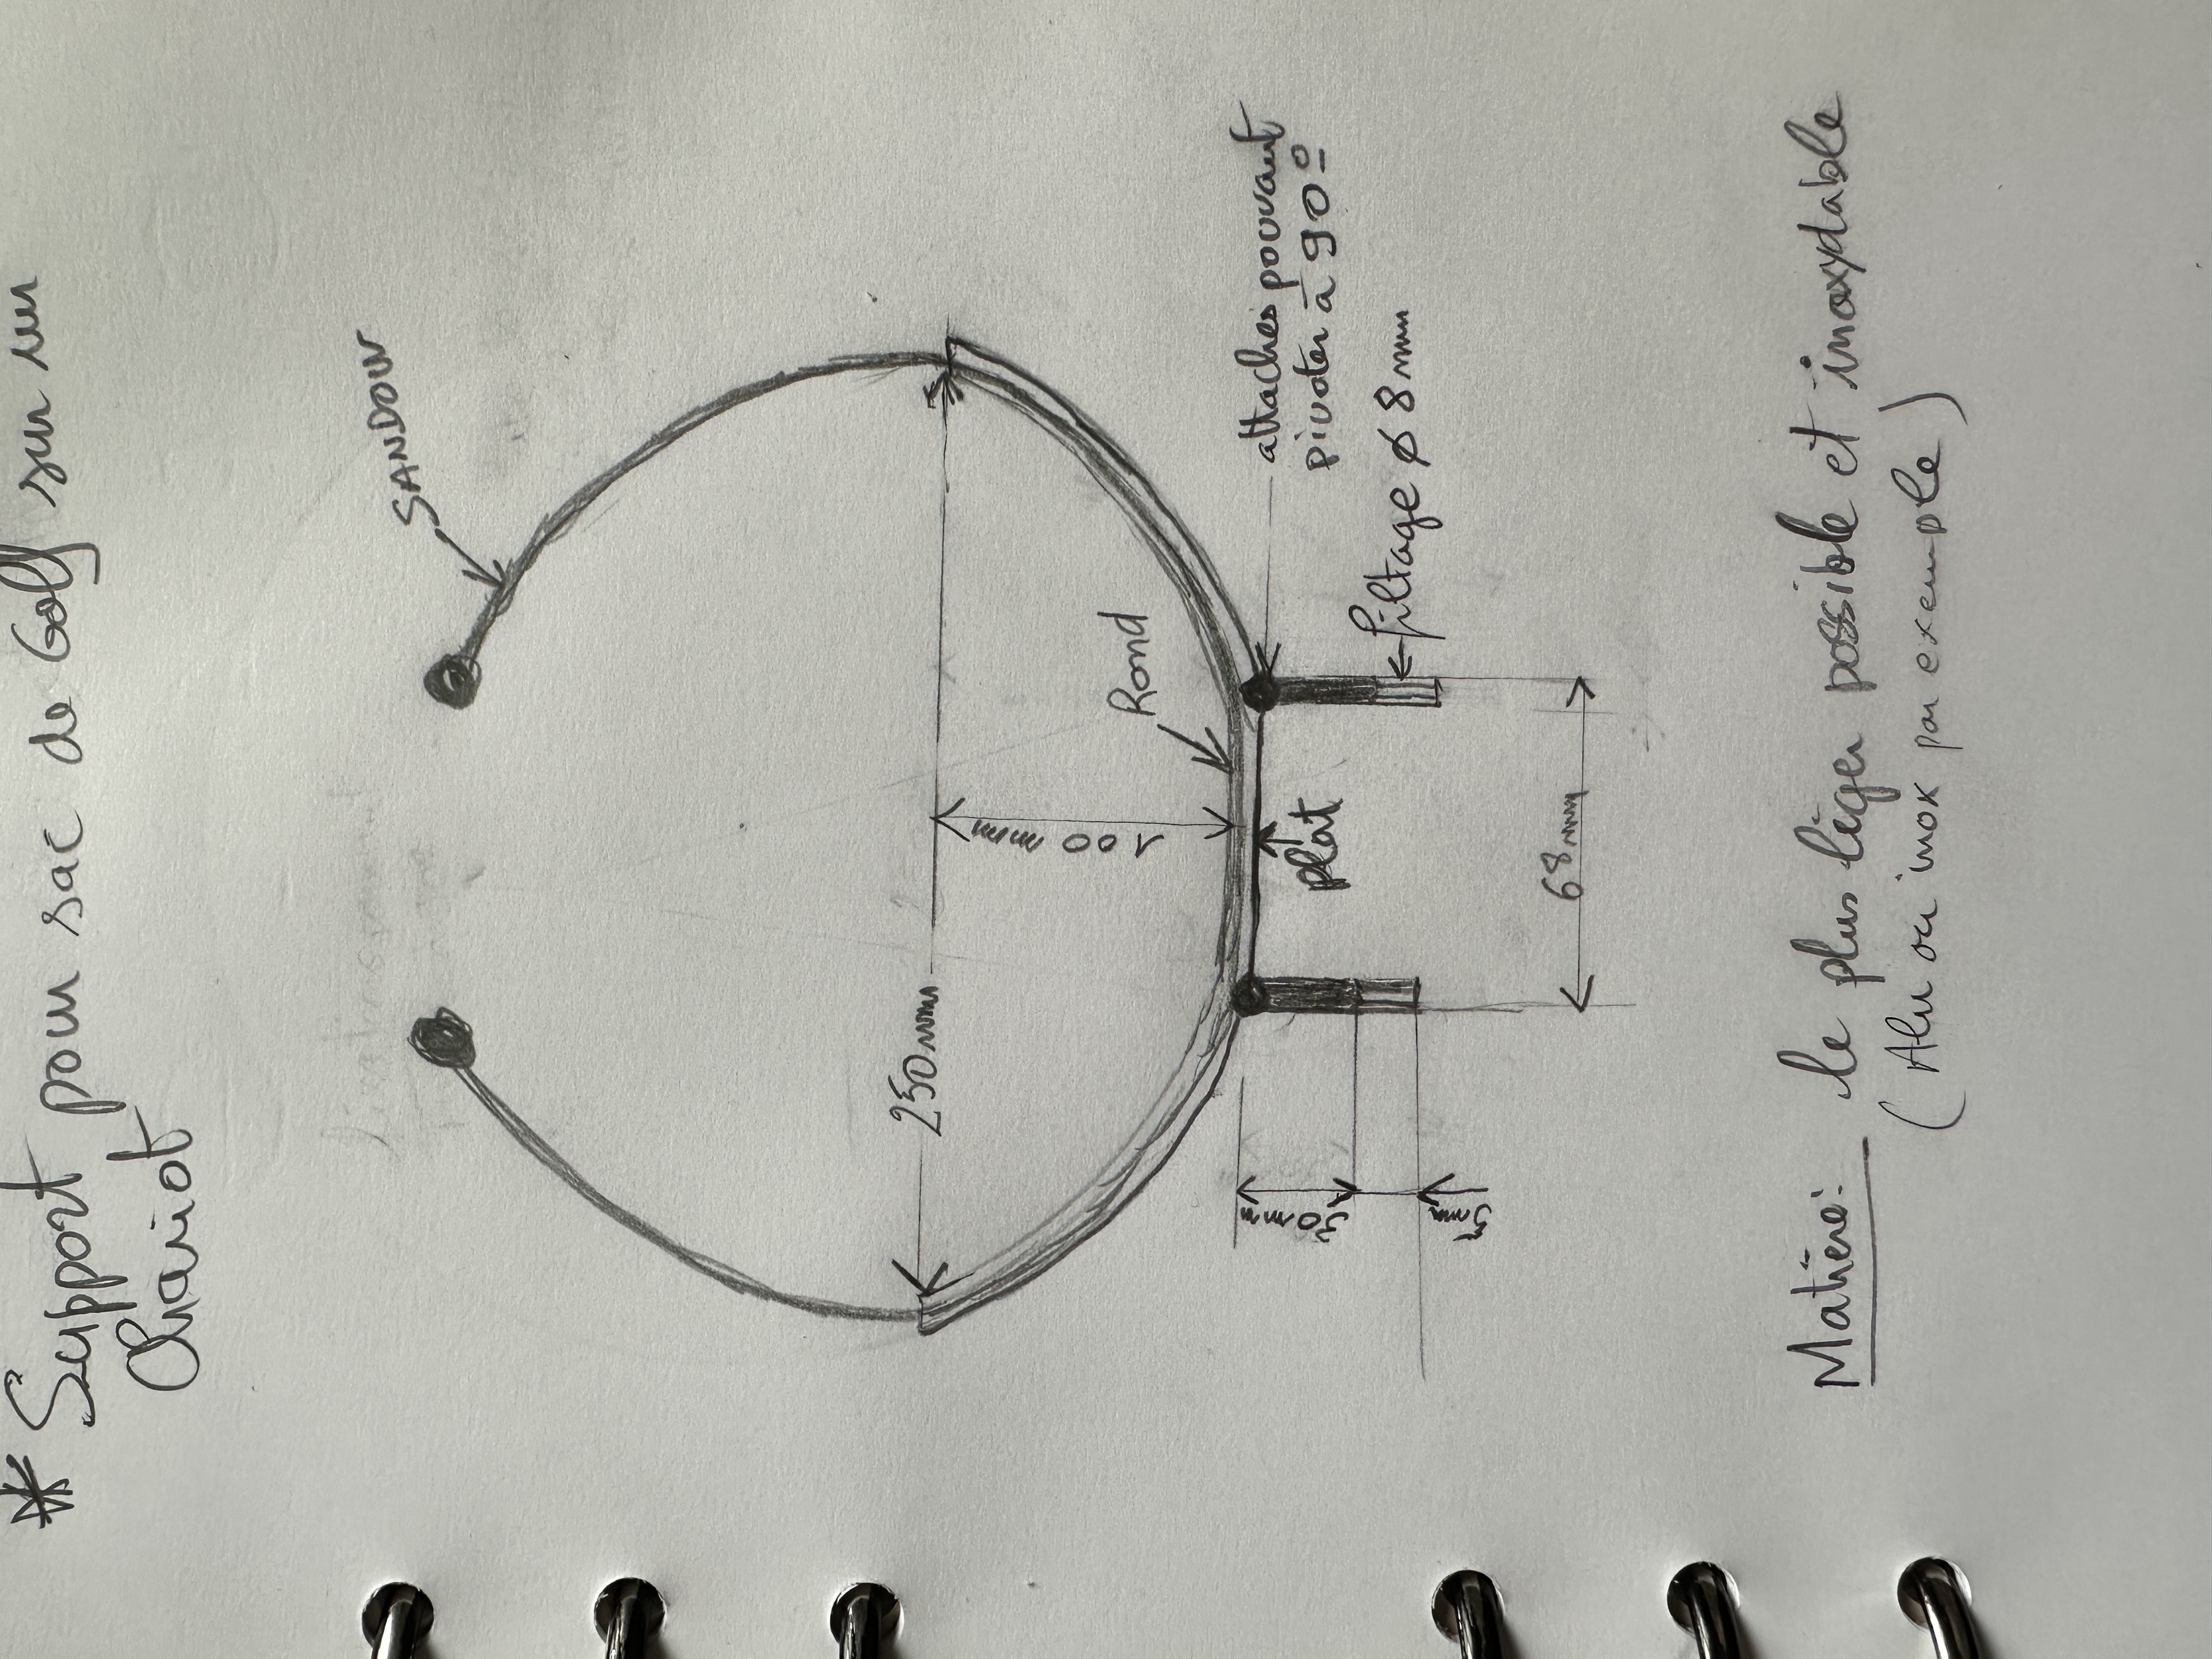 * Support pour sac de Golf sur un
Chariot
SANDOW
250mm
100 mm
Rond
plat
attaches pouvant
pivoter à 90°
filtage ø 8mm
30mm
5mm
68mm
Matière: le plus léger possible et inoxydable
(Alu ou inox par exemple)